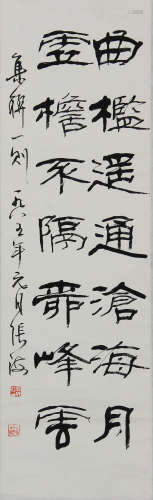 曲檻遥通滄海月
虛檐不隔霏峰雲
集聯一則 一九八五年元月張海